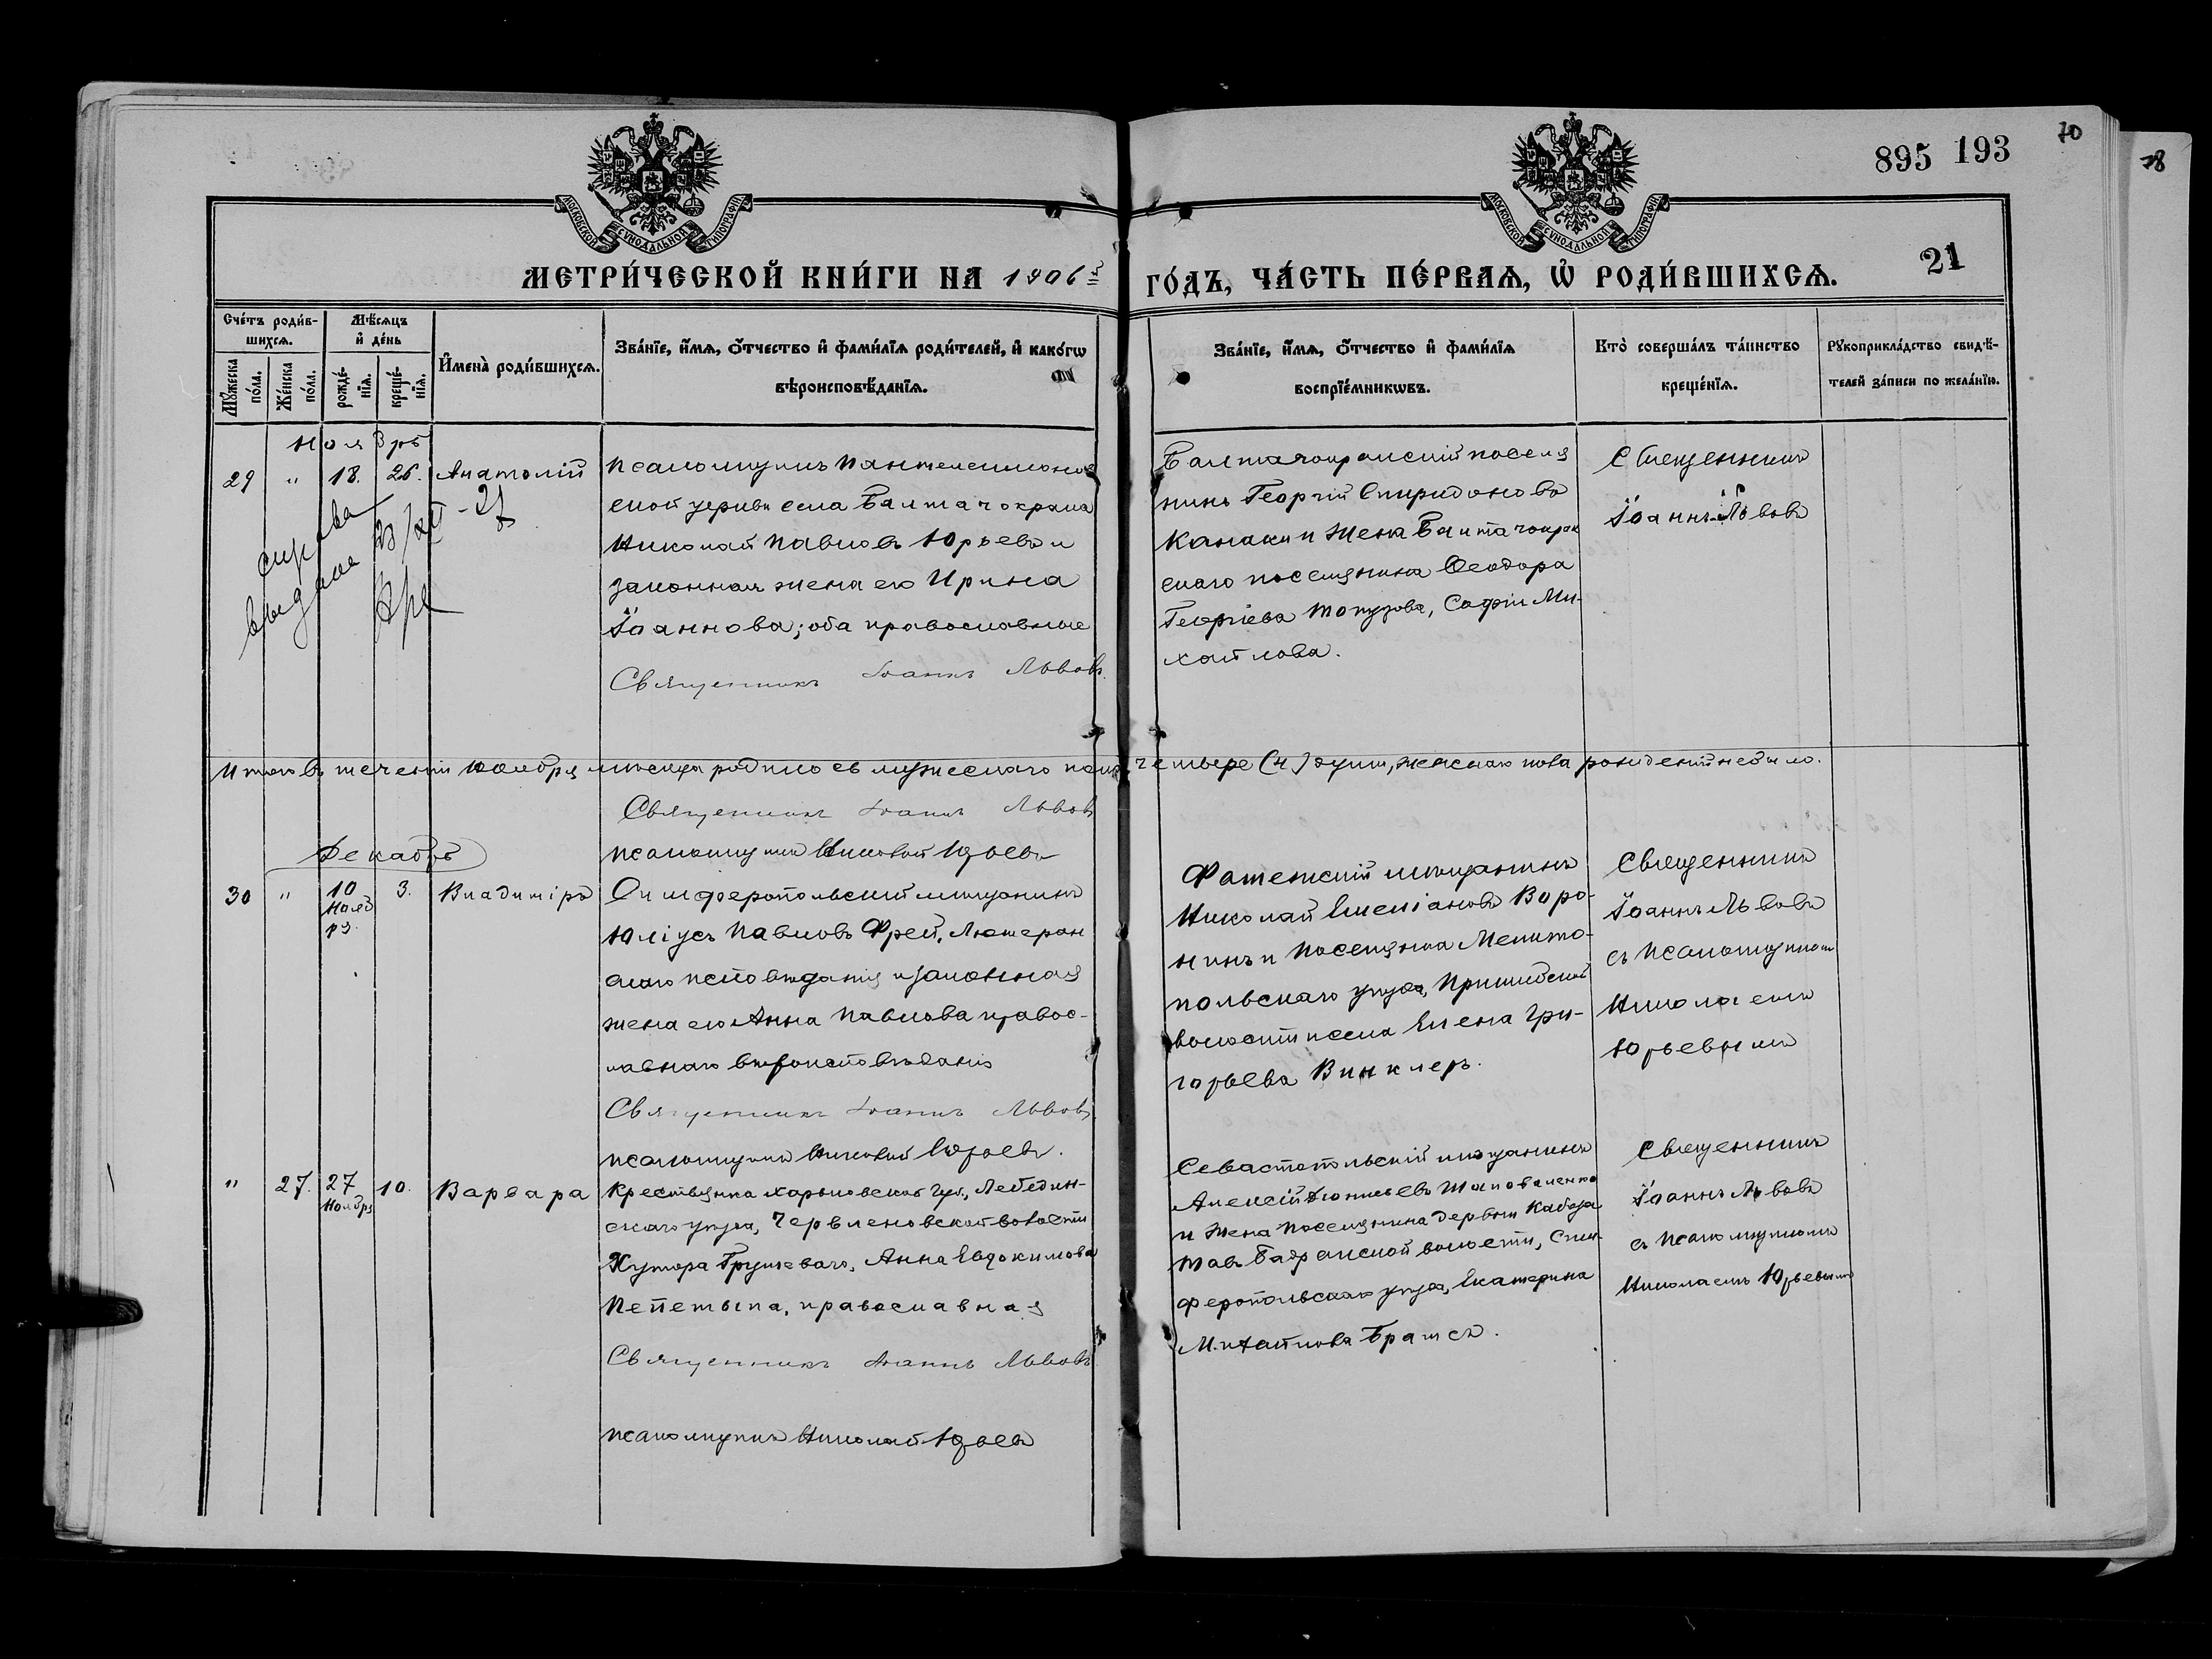 895 193
70
78
МОСКОВСКОЙ СѴНОДАЛЬНОЙ ТИПОГРАФІИ
МОСКОВСКОЙ СѴНОДАЛЬНОЙ ТИПОГРАФІИ
21
МЕТРИ́ЧЕСКОЙ КНИ́ГИ НА 1906й ГО́ДЪ, ЧА́СТЬ ПЕ́РВАѦ, Ѿ РОДИ́ВШИХСѦ.
Сче́тъ роди́вшихсѧ.
Мꙋ́жеска по́ла.
Же́нска по́ла.
Мѣ́сѧцъ и҆ де́нь
рожде́нїѧ.
креще́нїѧ.
И҆мена̀ роди́вшихсѧ.
Зва́нїе, и҆́мѧ, ѻ҆́тчество и҆ фами́лїѧ роди́телей, и҆ како́гѡ
вѣроисповѣ́данїѧ.
Зва́нїе, и҆́мѧ, ѻ҆́тчество и҆ фами́лїѧ
воспрїе́мникѡвъ.
Кто̀ соверша́лъ та́инство
креще́нїѧ.
Рꙋкоприкла́дство свидѣ́-
телей за́писи по жела́нїю.
Ноябрь
29 " 18. 26. Анатолій
справка
выдана
Псаломщикъ Пантелеимонов
ской церкви села Балтачокрака
Николай Павловъ Юрьевъ и
законная жена его Ирина
Іоаннова; оба православные
Священникъ Іоаннъ Львовъ
Балтачокракскій поселя
нинъ Георгій Спиридоновъ
Канаки и жена Балтачокрак
скаго поселянина Ѳеодора
Георгіева Топузова, Софія Ми-
хайлова.
Священникъ
Іоаннъ Львовъ
Итого въ теченіи ноября мѣсяца родилось мужескаго пола четыре (4) души, женскаго пола рожденій не было.
Священникъ Іоаннъ Львовъ
псаломщикъ Николай Юрьевъ
Декабрь
30 " 10 Ноября 3. Владиміръ
Симферопольскій мѣщанинъ
Юліусъ Павловъ Фрей, Лютеран
скаго исповѣданія и законная
жена его Анна Павлова правос-
лавнаго вѣроисповѣданія
Священникъ Іоаннъ Львовъ
псаломщикъ Николай Юрьевъ.
Фатежскій мѣщанинъ
Николай Емеліановъ Воро-
нинъ и Поселянка Мелито-
польскаго уѣзда, Пришибской
волости и села Елена Гри-
горьева Винклеръ.
Священникъ
Іоаннъ Львовъ
съ Псаломщикомъ
Николаемъ
Юрьевымъ
" 27. 27 Ноября 10. Варвара
Крестьянка Харьковской губ., Лебедин-
скаго уѣзда, Червленовской волости
Хутора Грушеваго, Анна Евдокимова
Пепетыпа, православная
Священникъ Іоаннъ Львовъ
псаломщикъ Николай Юрьевъ
Севастопольскій мѣщанинъ
Алексій Діонисьевъ Шаповаленко
и жена Поселянина деревни Кабаза
Табъ Бадракской волости, Сим-
феропольскаго уѣзда, Екатерина
Михайлова
Священникъ
Іоаннъ Львовъ
съ Псаломщикомъ
Николаемъ Юрьевымъ